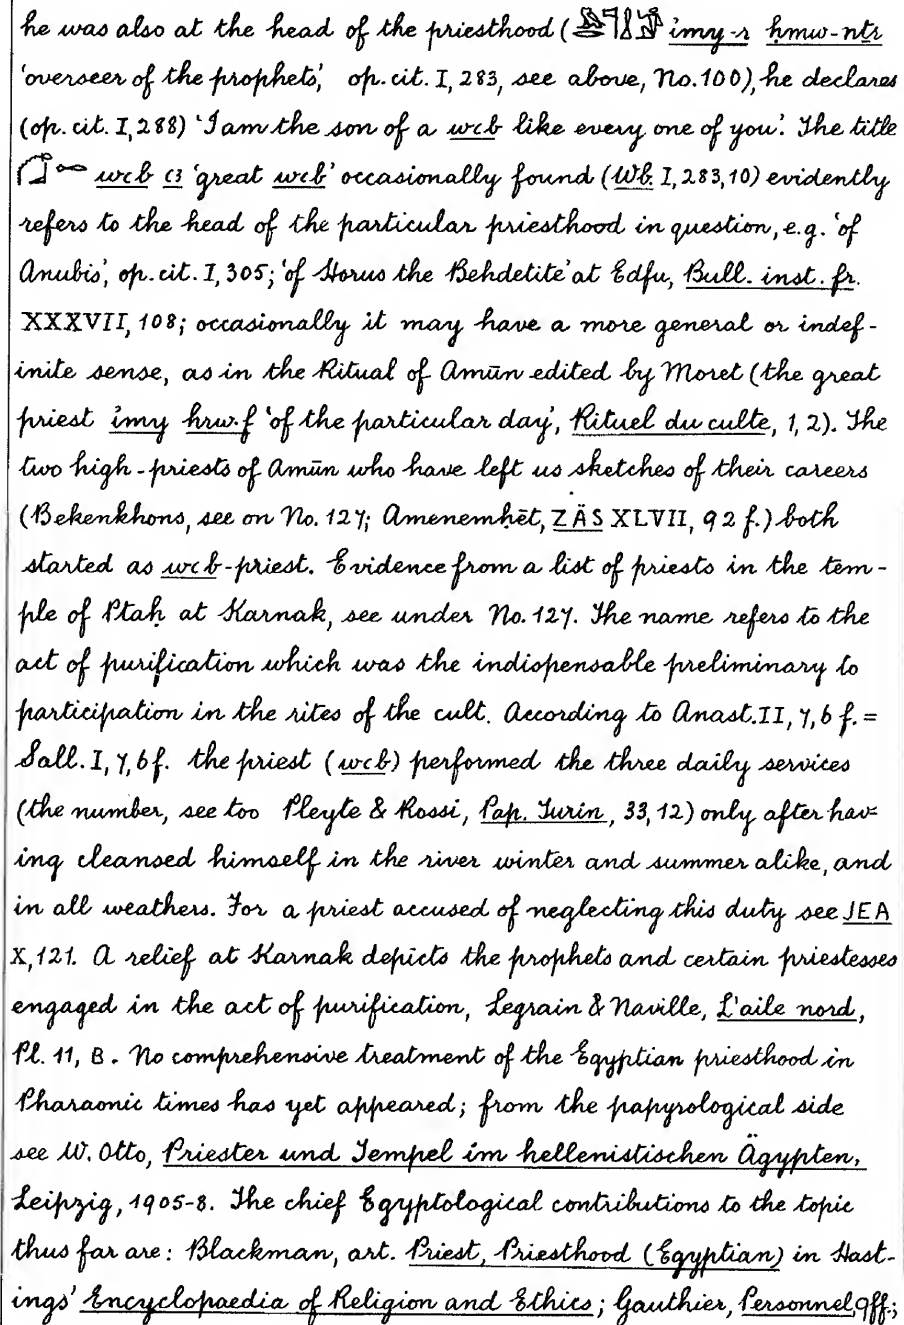 he was also at the head of the priesthood ( imy-r ḥmw-nṯr
'overseer of the prophets', op. cit. I, 283, see above, No. 100), he declares
(op. cit. I, 288) 'I am the son of a wꜥb like every one of you'. The title
wꜥb ꜥꜣ 'great wꜥb' occasionally found (Wb. I, 283, 10) evidently
refers to the head of the particular priesthood in question, e.g. 'of
Anubis', op. cit. I, 305; 'of Horus the Behdetite' at Edfu, Bull. inst. fr.
XXXVII, 108; occasionally it may have a more general or indef-
inite sense, as in the Ritual of Amūn edited by Moret (the great
priest imy hrw.f 'of the particular day', Rituel du culte, 1, 2). The
two high-priests of Amūn who have left us sketches of their careers
(Bekenkhons, see on No. 127; Amenemḥēt, ZÄS XLVII, 92 f.) both
started as wꜥb-priest. Evidence from a list of priests in the tem-
ple of Ptaḥ at Karnak, see under No. 127. The name refers to the
act of purification which was the indispensable preliminary to
participation in the rites of the cult. According to Anast. II, 7, 6 f. =
Sall. I, 7, 6 f. the priest (wꜥb) performed the three daily services
(the number, see too Pleyte & Rossi, Pap. Turin, 33, 12) only after hav-
ing cleansed himself in the river winter and summer alike, and
in all weathers. For a priest accused of neglecting this duty see JEA
X, 121. A relief at Karnak depicts the prophets and certain priestesses
engaged in the act of purification, Legrain & Naville, L'aile nord,
Pl. 11, B. No comprehensive treatment of the Egyptian priesthood in
Pharaonic times has yet appeared; from the papyrological side
see W. Otto, Priester und Tempel im hellenistischen Ägypten,
Leipzig, 1905-8. The chief Egyptological contributions to the topic
thus far are: Blackman, art. Priest, Priesthood (Egyptian) in Hast-
ings' Encyclopaedia of Religion and Ethics; Gauthier, Personnel, 9ff.;